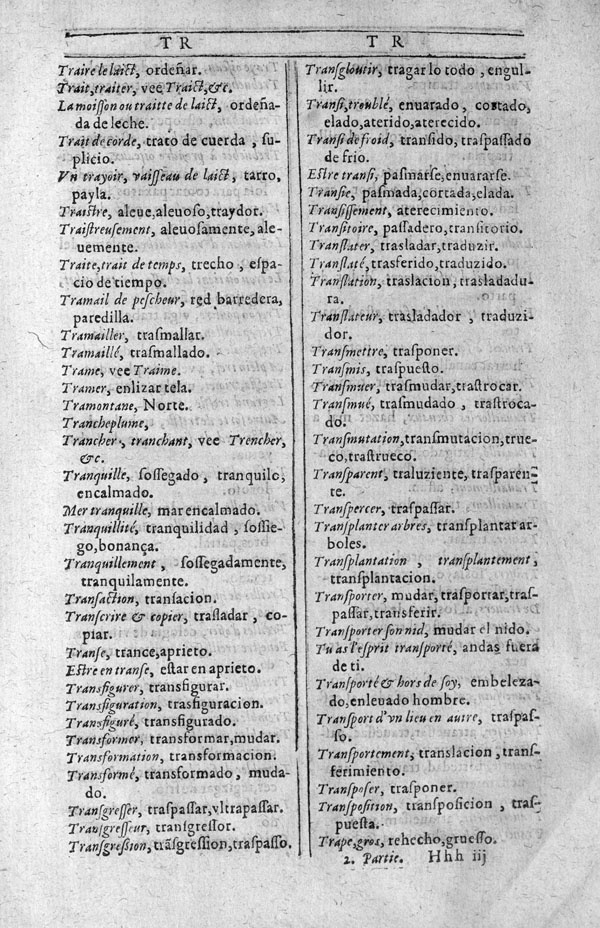 TR
TR
Traire le laict, ordeñar.
Trait, traiter, vee Traict, &c.
La moisson ou traitte de laict, ordeña-
da de leche.
Trait de corde, trato de cuerda, su-
plicio.
Vn trayoir, vaisseau de laict, tarro,
payla.
Traistre, aleue, aleuoso, traydor.
Traistreusement, aleuosamente, ale-
uemente.
Traite, trait de temps, trecho, espa-
cio de tiempo.
Tramail de pescheur, red barredera,
paredilla.
Tramailler, trasmallar.
Tramaillé, trasmallado.
Trame, vee Traime.
Tramer, enlizar tela.
Tramontane, Norte.
Trancheplume,
Trancher, tranchant, vee Trencher,
&c.
Tranquille, sossegado, tranquilo,
encalmado.
Mer tranquille, mar encalmado.
Tranquillité, tranquilidad, sossie-
go, bonança.
Tranquillement, sossegadamente,
tranquilamente.
Transaction, transacion.
Transcrire & copier, trasladar, co-
piar.
Transe, trance, aprieto.
Estre en transe, estar en aprieto.
Transfigurer, transfigurar.
Transfiguration, trasfiguracion.
Transfiguré, transfigurado.
Transformer, transformar, mudar.
Transformation, transformacion.
Transformé, transformado, muda-
do.
Transgresser, traspassar, vltrapassar.
Transgresseur, transgressor.
Transgression, trãsgression, traspasso.
Transgloutir, tragar lo todo, engul-
lir.
Transi, troublé, enuarado, cortado,
elado, aterido, aterecido.
Transi de froid, transido, traspassado
de frio.
Estre transi, pasmarse, enuararse.
Transie, pasmada, cortada, elada.
Transissement, aterecimiento.
Transitoire, passadero, transitorio.
Translater, trasladar, traduzir.
Translaté, trasferido, traduzido.
Translation, traslacion, trasladadu-
ra.
Translateur, trasladador, traduzi-
dor.
Transmettre, trasponer.
Transmis, traspuesto.
Transmuer, trasmudar, trastrocar.
Transmué, trasmudado, trastroca-
do.
Transmutation, transmutacion, true-
co, trastrueco.
Transparent, traluziente, trasparen-
te.
Transpercer, traspassar.
Transplanter arbres, transplantar ar-
boles.
Transplantation, transplantement,
transplantacion.
Transporter, mudar, trasportar, tras-
passar, transferir.
Transporter son nid, mudar el nido.
Tu as l'esprit transporté, andas fuera
de ti.
Transporté & hors de soy, embeleza-
do, enleuado hombre.
Transport d'vn lieu en autre, traspas-
so.
Transportement, translacion, trans-
ferimiento.
Transposer, trasponer.
Transposition, transposicion, tras-
puesta.
Trape, gros, rehecho, gruesso.
2. Partie. Hhh iij